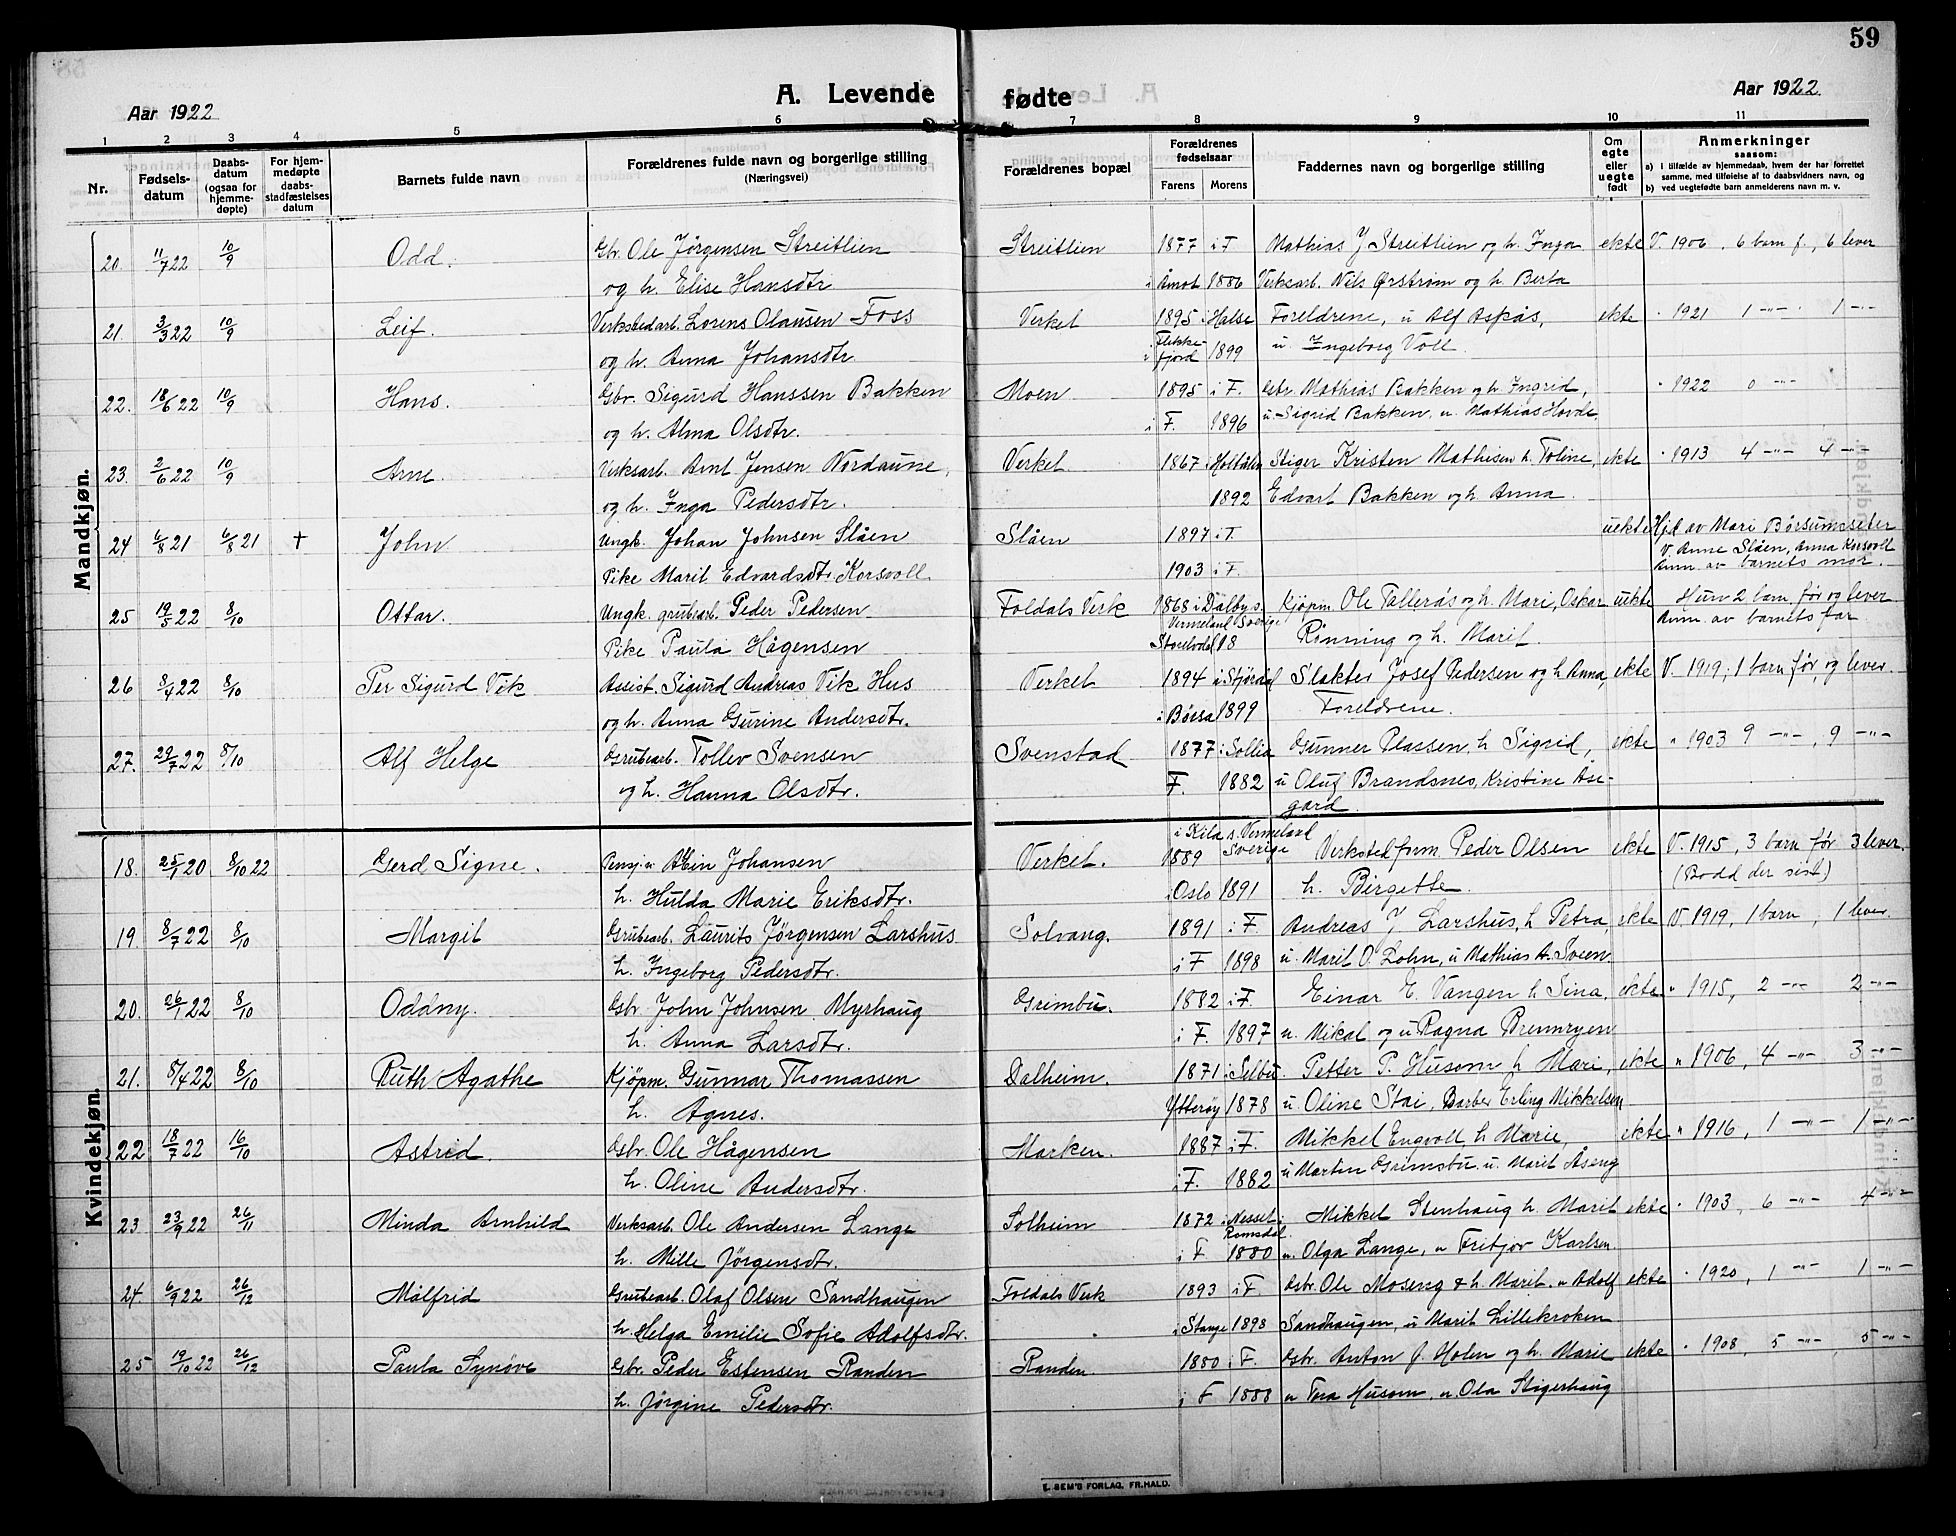 59
Aar 1922
A. Levende fødte
Aar 1922
1 2 3 4 5 6 7 8 9 10 11
Nr.
Fødsels-
datum
Daabs-
datum
(ogsaa for
hjemme-
døpte)
For hjem-
medøpte
daabs-
stadfæstelses
datum
Barnets fulde navn
Forældrenes fulde navn og borgerlige stilling
(Næringsvei)
Forældrenes bopæl
Forældrenes
fødselsaar
Farens Morens
Faddernes navn og borgerlige stilling
Om
egte
eller
uegte
født
Anmerkninger
saasom:
a) i tilfælde av hjemmedaab, hvem der har forrettet
samme, med tilføielse af to daabsvidners navn, og
b) ved uegtefødte barn anmelderens navn m. v.
Mandkjøn.
20. 11/7 22 10/9 Odd. Gbr. Ole Jörgensen Streitlien Streitlien 1877 i F. Mathias J Streitlien og h. Inga ekte V. 1906, 6 barn f., 6 lever
og h. Elise Hansdtr i Åmot 1886 Verksarb. Nils Ørström og h Berta
21. 3/3 22 10/9 Leif. Verkstedarb. Lorens Olausen Foss Verket 1895 i Halse Foreldrene, u Alf Aspås, ekte " 1921 1 -"- 1 -"-
og h. Anna Johansdtr. i Flekke-
fjord 1899 u. Ingeborg Voll.
22. 18/6 22 10/9 Hans. Gbr. Sigurd Hanssen Bakken Moen 1895 i F. Gbr. Mathias Bakken og h. Ingrid, " 1922 0 -"-
og h. Alma Olsdtr. i F. 1896 u. Sigrid Bakken, u. Mathias Hovde
23. 2/6 22 10/9 Arne. Verksarb. Arnt Jensen Nordaune, Verket 1867 i Holtålen Stiger Kristen Mathisen h. Toline, ekte " 1913 4 -"- 4 -"-
og h. Inga Pedersdtr. 1892 Edvart Bakken og h. Anna.
24 6/8 21 6/8 21 † John Ungk. Johan Johnsen Slåen Slåen 1897 i F. uekte Hjd av Mari Börsumseter
V. Anne Slåen, Anna Korsvoll
Pike Marit Edvardsdtr Korsvoll. 1903 i F. Anm. av barnets mor.
25 19/5 22 8/10 Ottar. Ungk. grubearb. Peder Pedersen Foldals Verk 1868 i Dalby s. Kjöpm. Ole Tallerås og h. Mari, Oskar uekte Hun 2 barn för og lever
Vermeland Sverige Anm. av barnets far.
Pike Paula Hågensen Storelvdal 18 Rönning og h. Marit.
26 8/4 22 8/10 Per Sigurd Vik Assist. Sigurd Andreas Vik Hus Verket 1894 i Stjördal Slakter Josef Pedersen og h Anna, ekte V. 1919, 1 barn för, og lever.
og h. Anna Gurine Andersdtr. i Börsa 1899 Foreldrene.
27. 29/7 22 8/10 Alf Helge Grubearb. Tollev Svensen Svenstad 1877 i Sollia Gunner Plassen, h Sigrid, ekte " 1903 9 -"-, 9 -"-
og h. Hanna Olsdtr. F. 1882 u Oluf Brandsnes, Kristine Åse-
gard.
Kvindekjøn.
18. 25/1 20 8/10 22 Gerd Signe. Johansen Verket. i Kila s. Vermeland
1889 Sverige Verkstedform. Peder Olsen ekte V. 1915, 3 barn før 3 lever.
h. Hulda Marie Eriksdtr. i Oslo 1891 h. Birgette. (Bodd der sist)
19 8/7 22 8/10 Margit Grubearb. Laurits Jörgensen Larshus Solvang. 1891 i F. Andreas J Larshus, h Petra, ekte V. 1919, 1 barn, 1 lever.
h. Ingeborg Pedersdtr. i F 1898 u. Marit O. Lohn, u Mathias A. Sveen
20. 26/1 22 8/10 Oddny. Gbr. John Johnsen Myrhaug Grimbu. 1882 i F. Einar E. Vangen h Sina, ekte " 1915, 2 -"- 2 -"-
h. Anna Larsdtr. i F. 1897 u. Mikal og u Ragna Brennryen
21. 8/4 22 8/10 Ruth Agathe Kjöpm. Gunnar Thomassen Dalheim. 1871 i Selbu. Petter P. Husom h Mari, ekte " 1906, 4 -"- 3 -"-
h. Agnes. Ytteröy 1878 u. Oline Stai, Barber Erling Mikkelsen
22 18/7 22 16/10 Astrid. Gbr. Ole Hågensen Marken. 1887 i F. Mikkel Engvoll h Marie, ekte " 1916, 1 -"- 1 -"-
h. Oline Andersdtr. i F. 1882 u Martin Grimsbu. u. Marit Åseng
23 23/9 22 26/11 Minda Arnhild Verksarb. Ole Andersen Lange Solheim 1872 i Nesset i Mikkel Stenhaug h Marit ekte " 1903, 6 -"- 4 -"-
Romsdal
h. Mille Jörgensdtr. i F 1880 u. Olga Lange, u Fritjov Karlsen.
24. 6/9 22 26/12 Målfrid Grubearb. Olaf Olsen Sandhaugen Foldals Verk 1893 i F Gbr. Ole Moseng & h. Marit. u Adolf ekte " 1920, 1 -"- 1 -"-
h. Helga Emilie Sofie Adolfsdtr. i Stange 1898 Sandhaugen, u Marit Lillekroken
25 19/10 22 26/12 Paula Synöve Gbr. Peder Estensen Randen Randen. 1880 i F. Gbr. Anton J. Holen og h. Marie ekte " 1908, 5 -"-, 5 -"-
h. Jörgine Pedersdtr. i F 1888 u Tora Husom, u. Ola Stigerhaug
E. SEM'S FORLAG, FR.HALD.